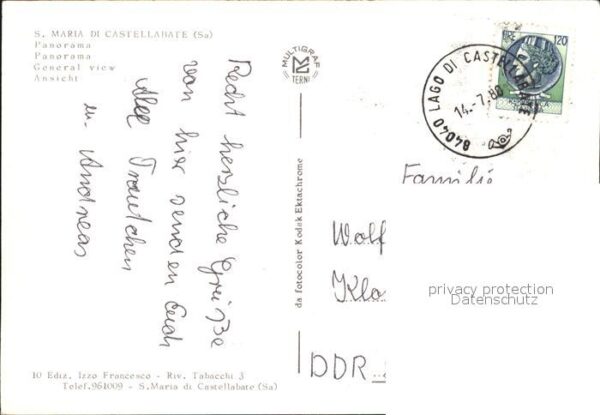 S. MARIA DI CASTELLABATE (Sa)
Panorama
Panorama
General view
Ansicht
Recht herzliche Grüße
von hier senden Euch
Trautchen
u. Andreas
10 Ediz. Izzo Francesco - Riv. Tabacchi 3
Telef. 961009 - S. Maria di Castellabate (Sa)
MULTIGRAF
TERNI
da fotocolor Kodak Ektachrome
LIRE 120
84040 LAGO DI CASTELLABATE
14.-7.80
Familie
Wolf
Kla
DDR
privacy protection
Datenschutz